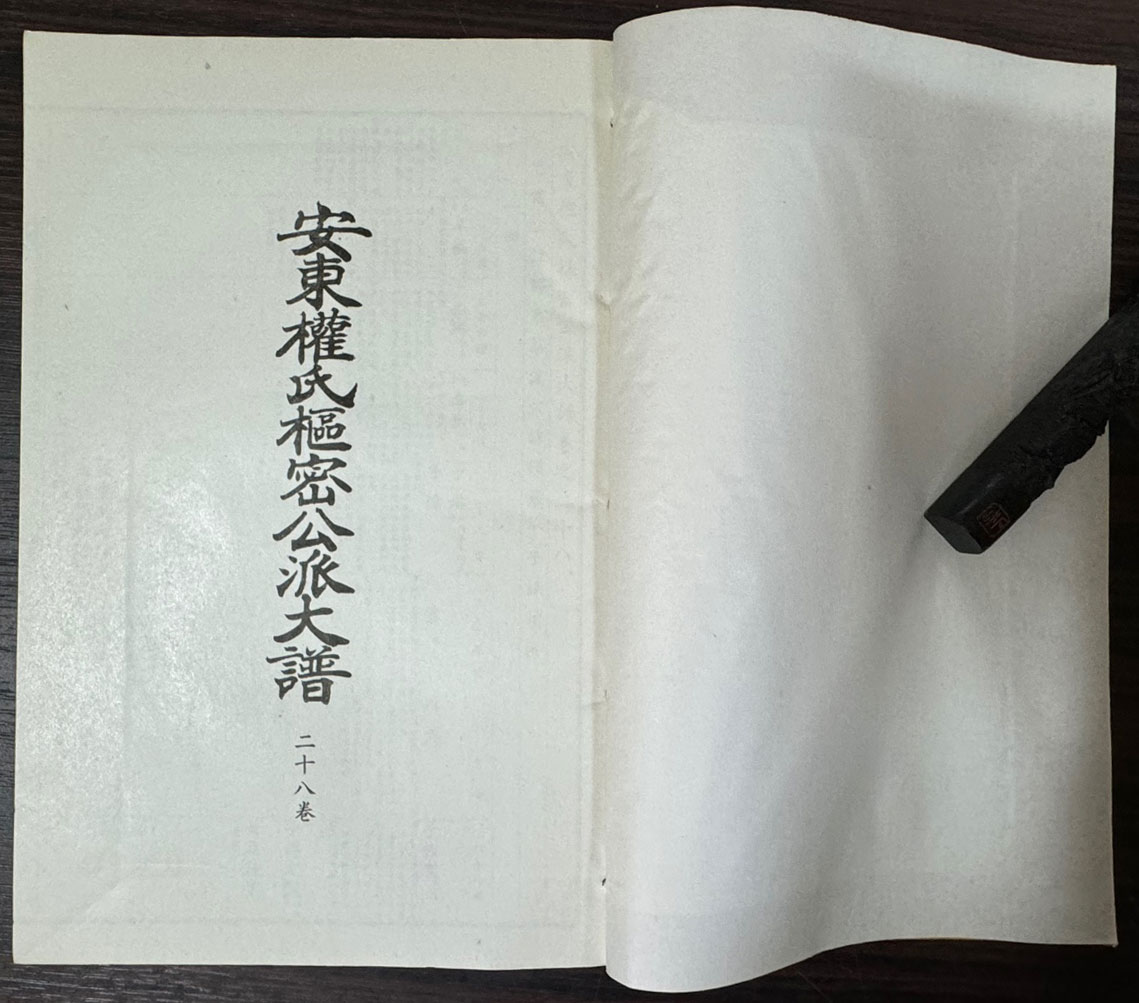 安東權氏樞密公派大譜
二十八卷